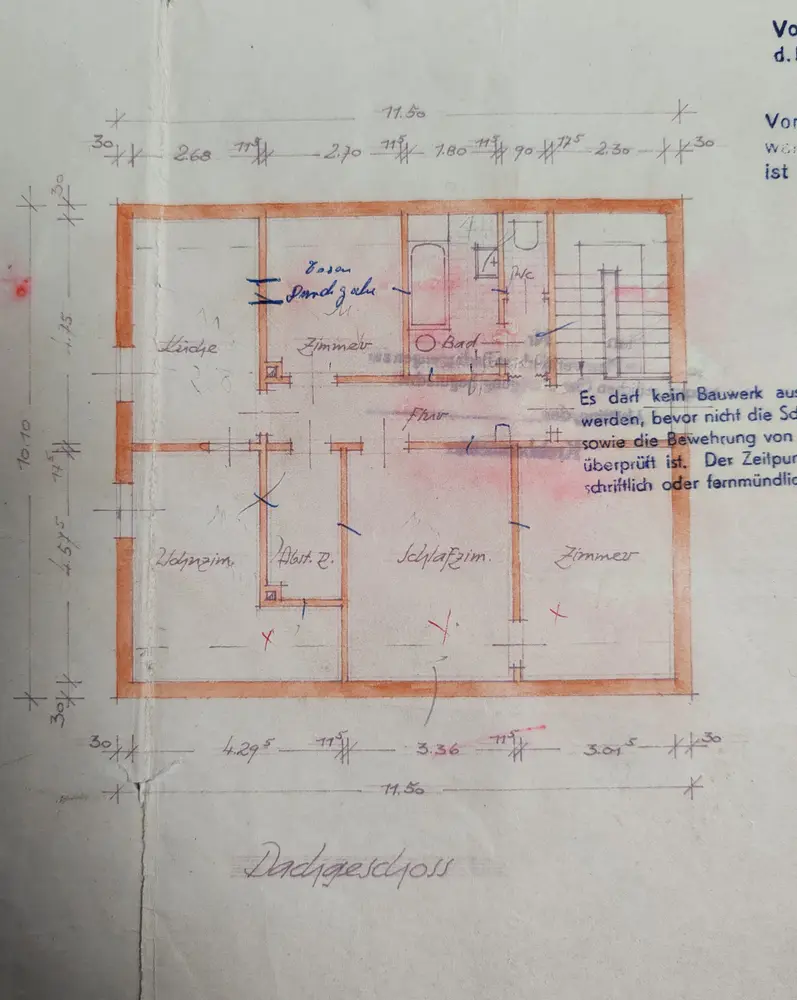 Vo
d.
11.50
Vor
ist
30 2.68 11⁵ 2.70 11⁵ 1.80 11⁵ 90 17⁵ 2.30 30
30
WC
Durchgabe
Küche
Zimmer
Bad
4.75
Es darf kein Bauwerk aus
Flur
werden, bevor nicht die Sc
10.10
17⁵
sowie die Bewehrung von
überprüft ist. Der Zeitpun
schriftlich oder fernmündlic
4.57⁵
Wohnzim.
Abst. R.
Schlafzim.
Zimmer
30
30 4.29⁵ 11⁵ 3.36 11⁵ 3.01⁵ 30
11.50
Dachgeschoss